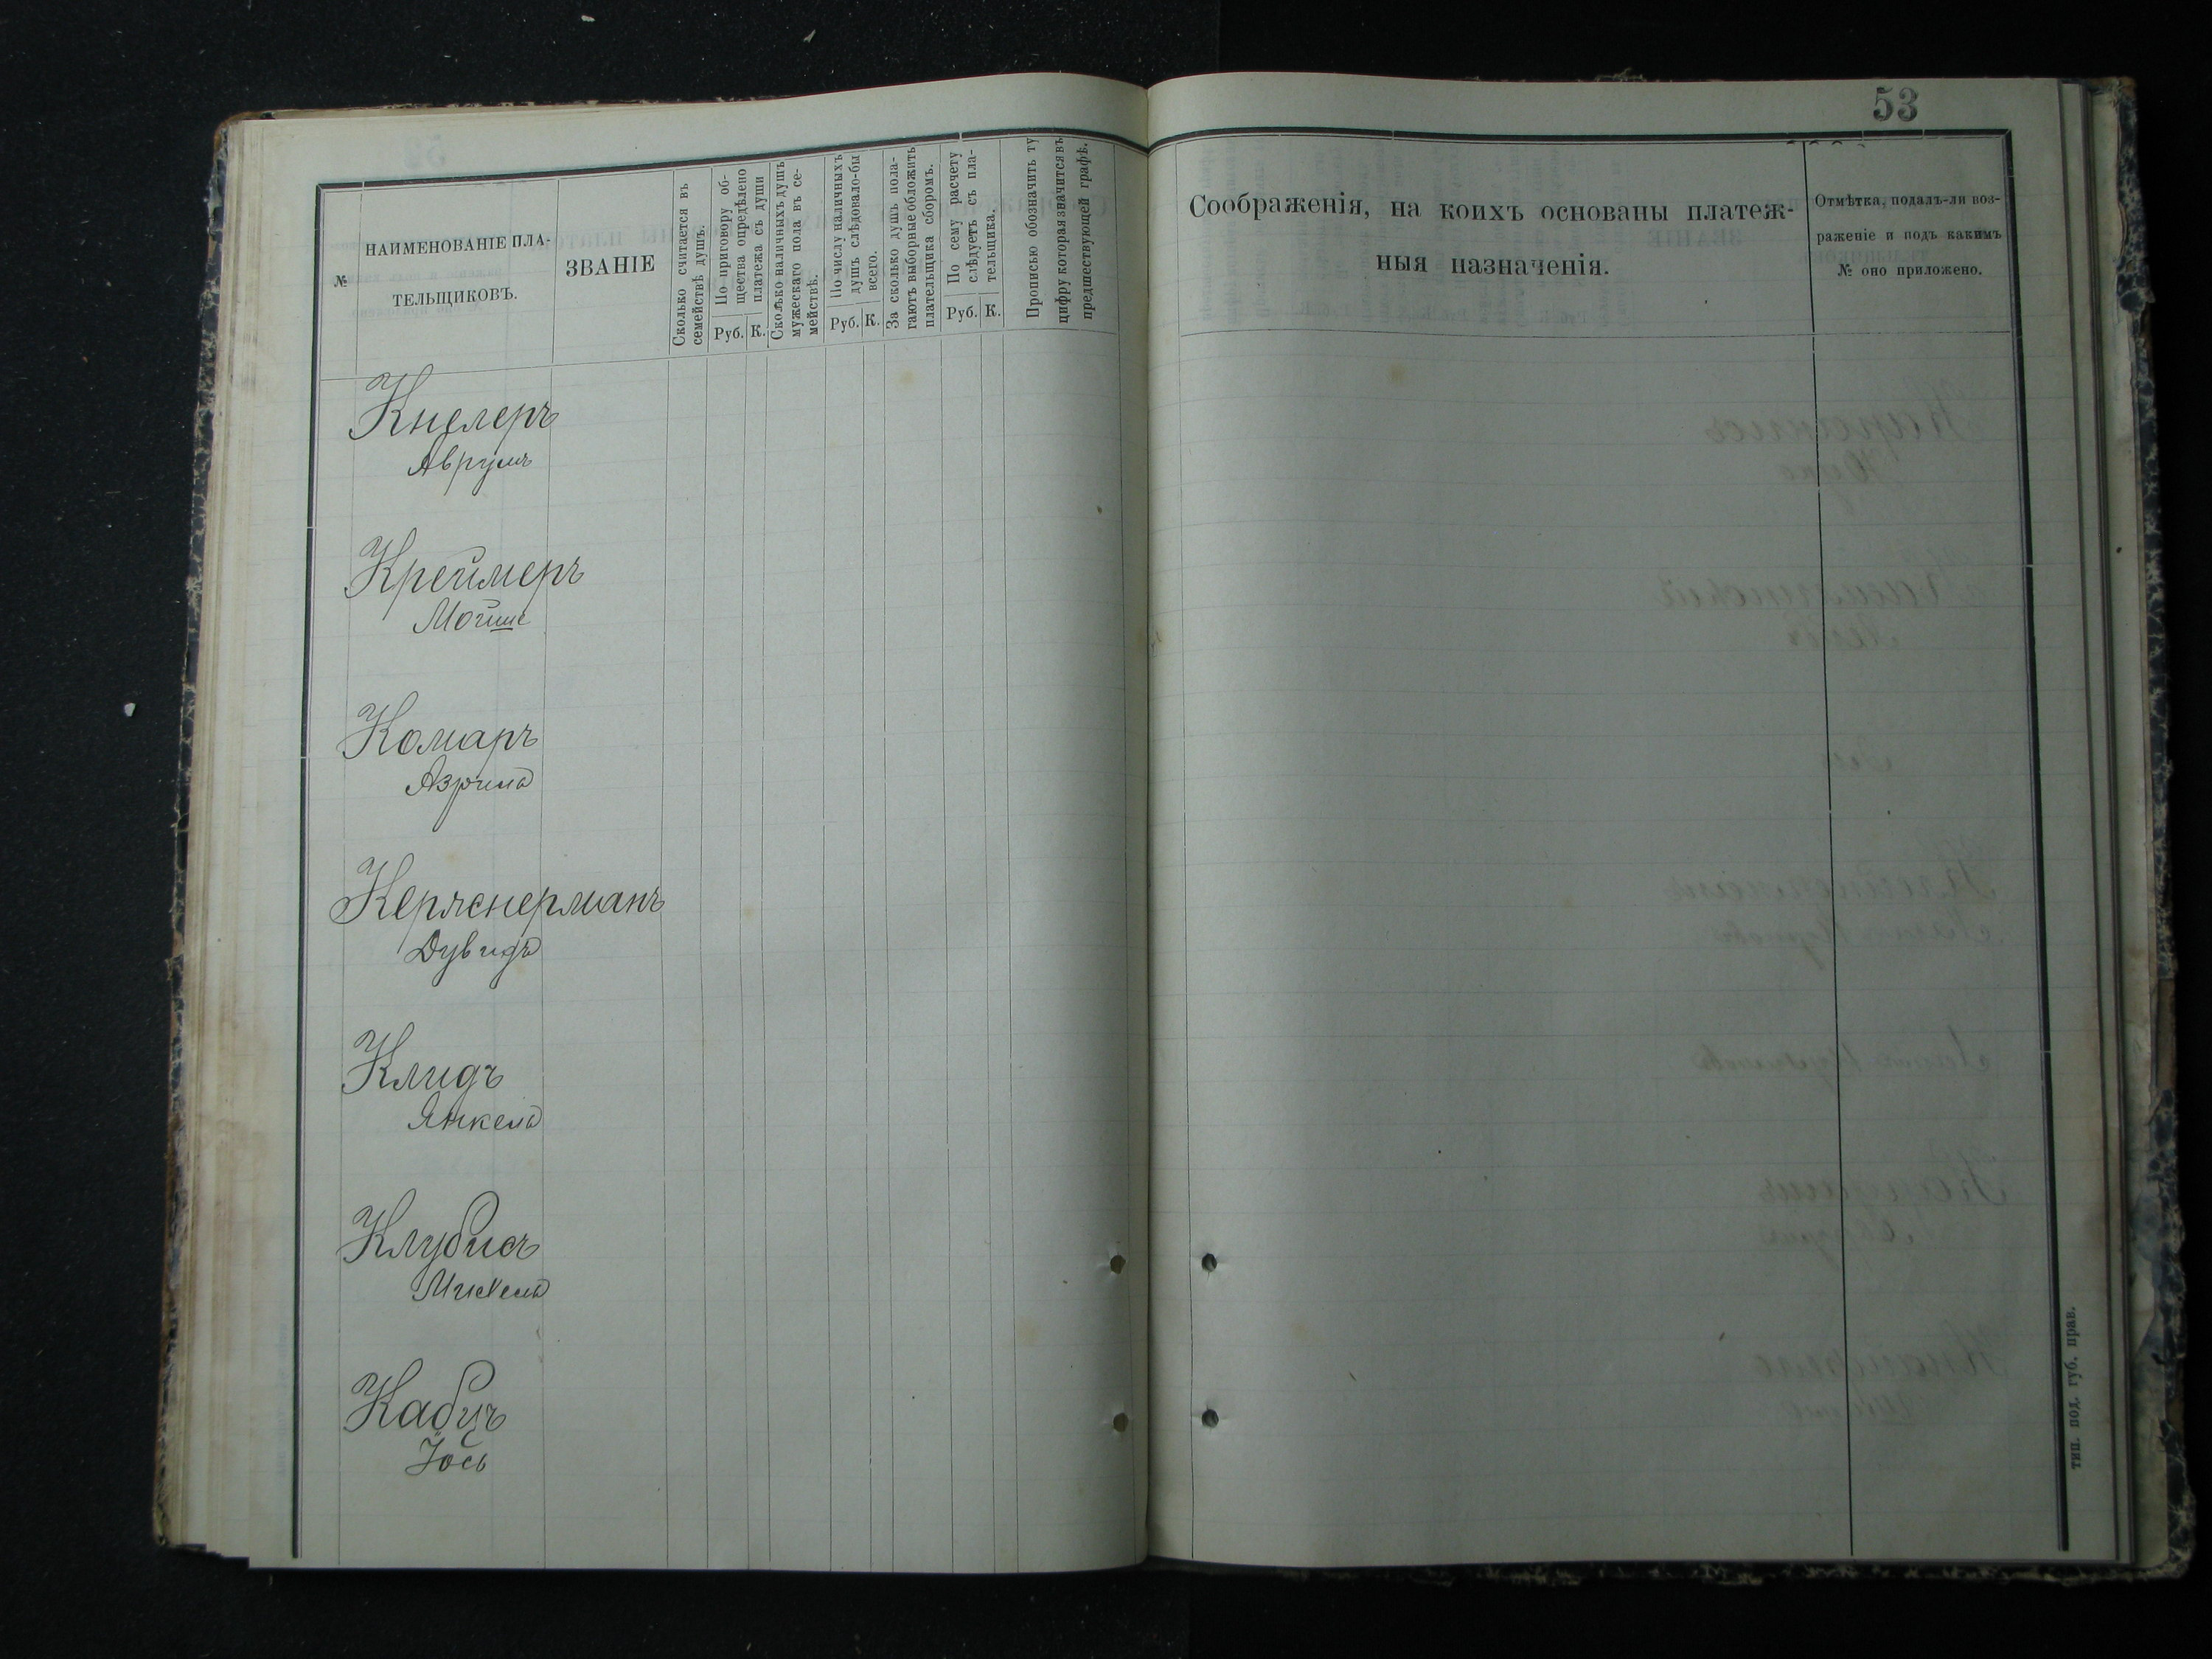 53
№
НАИМЕНОВАНІЕ ПЛА-
ТЕЛЬЩИКОВЪ.
ЗВАНІЕ
Сколько считается въ
семействѣ душъ.
По приговору об-
щества опредѣлено
платежа съ души
Руб. К.
Сколько наличныхъ душъ
мужескаго пола въ се-
мействѣ.
По числу наличныхъ
душъ слѣдовало-бы
всего.
Руб. К.
За сколько душъ пола-
гаютъ выборные обложить
плательщика сборомъ.
По сему расчету
слѣдуетъ съ пла-
тельщика.
Руб. К.
Прописью обозначить ту
цифру которая значится въ
предшествующей графѣ.
Соображенія, на коихъ основаны платеж-
ныя назначенія.
Отмѣтка, подалъ-ли воз-
раженіе и подъ какимъ
№ оно приложено.
Кнелеръ
Аврумъ
Креймеръ
Мойше
Комаръ
Азрилъ
Дувидъ
Клидъ
Янкель
Клубисъ
Кабуъ
Іось
тип. под. губ. прав.